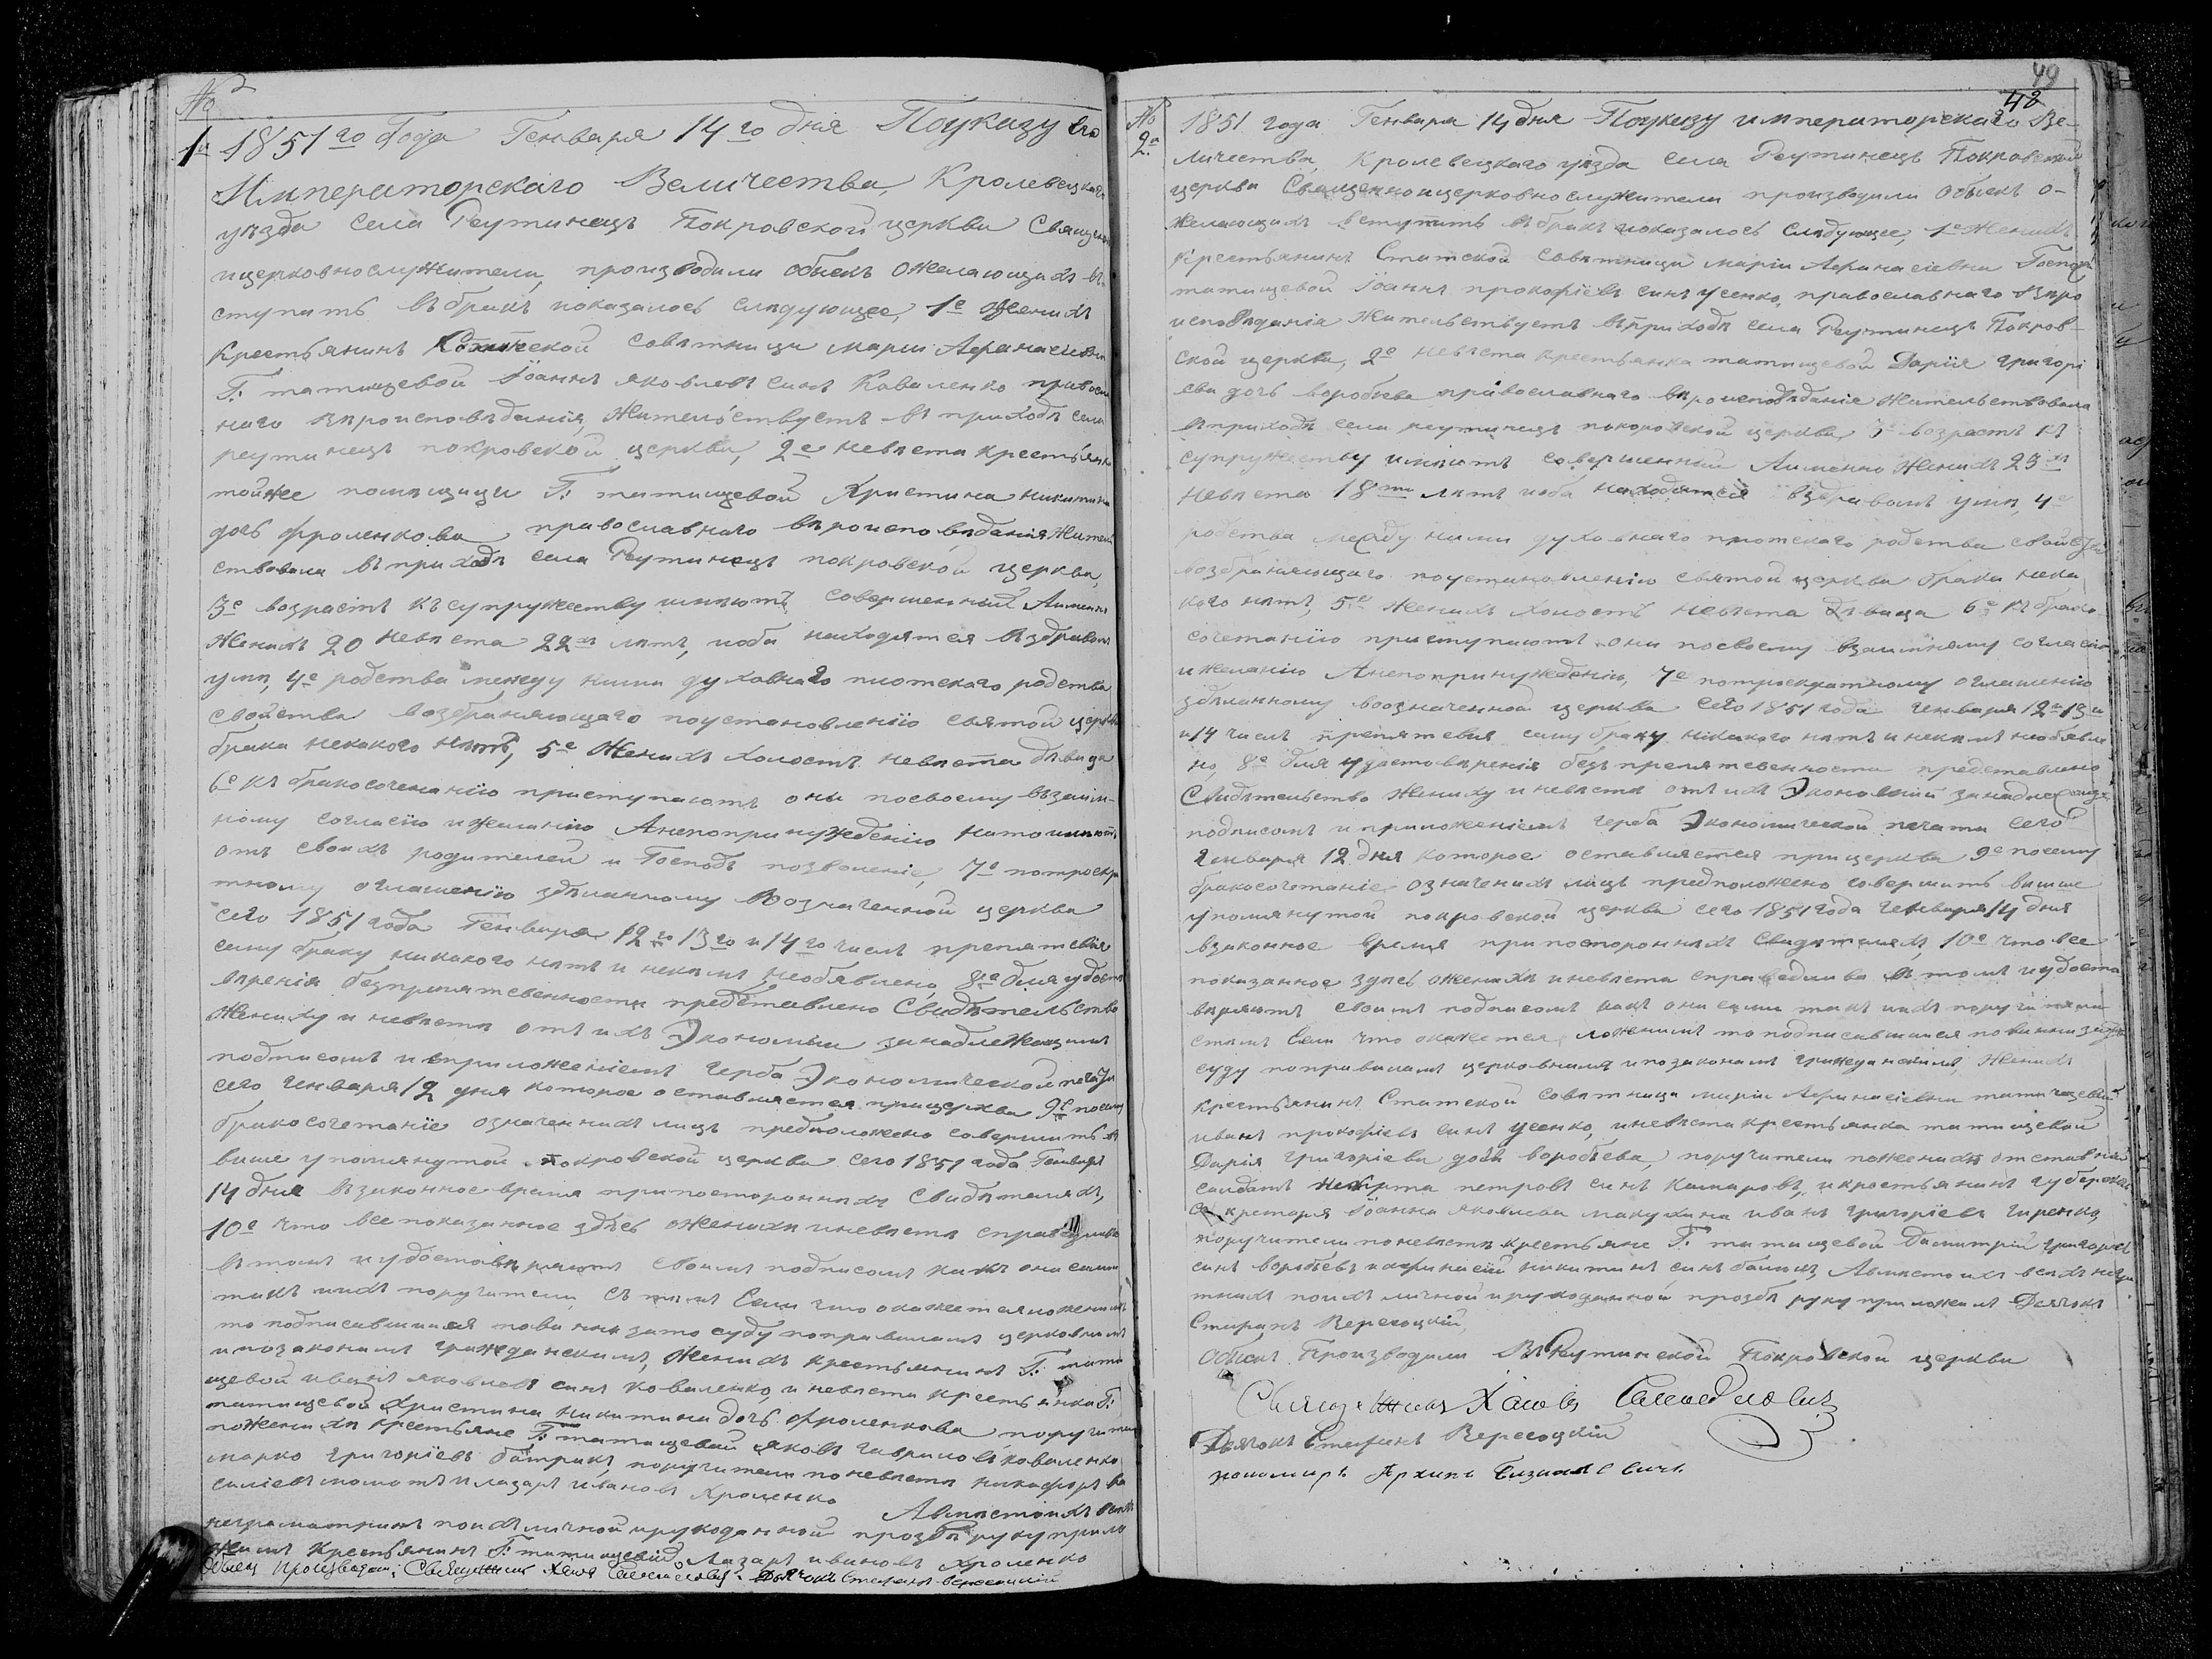 №
1й 1851го Года Генваря 14го дня Поуказу Его
Императорскаго Величества, Кролевецкаго
уѣзда села Реутинецъ Покровской церкви Священно
ицерковнослужители, производили обыскъ ожелающихъ въ
ступить въ бракъ ипоказалось слѣдующее, 1е Женихъ
Крестьянинъ совѣтници маріи Афанасіевни
Г: татищевой Іоаннъ яковлевъ синъ Коваленко православ
наго вѣроисповѣданія, Жительствуетъ въ приходѣ села
реутинецъ покровской церкви, 2е невѣста крестьянка
тойже помѣщици Г: татищевой Христина никитина
дочь фроленкова православнаго вѣроисповѣданія Житель
ствовала въ приходѣ села Реутинецъ покровской церкви,
3е возрастъ къ супружеству имѣютъ совершенный Аименно
Женихъ 20 невѣста 22хъ лѣтъ, иоба находятся въздравомъ
умѣ, 4е родства между ними духовнаго плотскаго родства
свойства возбраняющаго поустановленію святой церкви
брака некакого нѣтъ, 5е Женихъ холостъ невѣста дѣвица
6е къ бракосочетанію приступаютъ они посвоему взаим-
ному согласію ижеланію Анепопринужденію натоимѣютъ
отъ своихъ родителей и Господъ позволеніе, 7е потроекра
тному оглашенію здѣланному Возначенной церкви
сего 1851 года Генваря 12го 13го и 14го числъ препятствія
сему браку никакого нѣтъ и некимъ необявлено, 8е дляудосто
вѣренія безпрепятственности представлено Свидѣтельство
Жениху и невѣстѣ отъ ихъ Экономіи занадлежащимъ
подписомъ и приложеніемъ герба Экономической печати
сего генваря 12 дня которое оставляется прицеркви 9е посему
бракосочетаніе означеннихъ лицъ предположено совершить въ
више упомянутой покровской церкви сего 1851 года Генваря
14 дня взаконное время припосторонниху Свидѣтеляхъ,
10е что все показанное здѣсь оженихѣ иневѣстѣ справедливо
въ томъ иудостовѣряютъ своимъ подписомъ какъ они сами
такъ иихъ поручители, съ тѣмъ Если что окажется ложнимъ
то подписавшіися повинни зато суду поправиламъ церковнимъ
ипозаконамъ гражданскимъ, Женихъ крестьянинъ Г: тати
щевой иванъ яковлевъ синъ коваленко, и невѣста крестьянка Г:
татищевой Христина никитина дочь фроленкова поручители
поженихѣ крестьяне Г: татищевой яковъ гавриловъ коваленко
марко григоріевъ батрикъ, поручители поневѣстѣ никифоръ ва
силіевъ и лазарь ивановъ Хроленко Авмѣстоихъ всѣхъ
неграматнихъ поихъ личной ирукоданной прозбѣ руку прило
жилъ Крестьянинъ Г: татищевой Лазарь ивановъ Хроленко
Обыскъ Производили: Священникъ Дьячокъ Стефанъ Вересоцкій
49
42
№
2й
1851 года Генваря 14 дня Поуказу императорскаго Ве-
личества, Кролевецкаго уѣзда села Реутинецъ Покровской
церкви Священноицерковнослужители производили Обыскъ о-
желающихъ вступить въ бракъ ипоказалось слѣдующее, 1е Женихъ
Крестьянинъ Статской совѣтници маріи Афанасіевни Госпожи
татищевой Іоаннъ прокофіевъ синъ усенко, православнаго вѣро
исповѣданія Жительствуетъ въприходѣ села Реутинецъ Покров-
ской церкви, 2е невѣста крестьянка татищевой Дарія григорі
ева дочь воробева православнаго вѣроисповѣданіе Жительствовала
въприходѣ села реутинецъ покоровской церкви, 3е возрастъ къ
супружеству имѣютъ совершенный Аименно Женихъ 23хъ
невѣста 18ти лѣтъ иоба находятся въздравомъ умѣ, 4е
родства между ними духовнаго плотскаго родства свойства
возбраняющаго поустановленію святой церкви брака нека
кого нѣтъ, 5е Женихъ холостъ невѣста дѣвица 6е къ брако
сочетанію приступаютъ они посвоему взаимному согласію
ижеланію Анепопринужденію, 7е потроекратному оглашенію
здѣланному возначенной церкви сего 1851 года генваря 12го 13го
и 14 числъ препятствія сему браку никакого нѣтъ и некимъ необявле
но, 8е для удостовѣренія безпрепятственности представлено
Свидѣтельство Жениху и невѣстѣ отъ ихъ Экономіи занадлежащимъ
подписомъ и приложеніемъ герба Экономической печати сего
генваря 12 дня которое оставляется прицеркви 9е посему
бракосочетаніе означенихъ лицъ предположено совершить више
упомянутой покровской церкви сего 1851 года генваря 14 дня
взаконное время припостороннихъ свидѣтеляхъ, 10е что все
показанное здѣсь оженихѣ иневѣстѣ справедливо въ томъ иудосто
вѣряютъ своимъ подписомъ какъ они сами такъ иихъ поручители
стѣмъ Если что окажется ложнимъ то подписавшіися повинни зато
суду поправиламъ церковнимъ и позаконамъ гражданскимъ, Женихъ
крестьянинъ Статской совѣтници маріи Афанасіевни татищевой
иванъ прокофіевъ синъ усенко, иневѣста крестьянка татищевой
Дарія григоріева дочь воробева, поручители поженихѣ отставной
салдатъ петровъ синъ Комаровъ, икрестьянинъ губернск
секретаря Іоанна яковлева макухина иванъ григоріевъ гиренко,
поручители поневѣстѣ крестьяне Г: татищевой Димитрій григоріевъ
синъ воробевъ и афанасій никитинъ синъ Авмѣсто ихъ всѣхъ неграма
тнихъ поихъ личной ирукоданной прозбѣ руку приложилъ Дьячокъ
Стефанъ Вересоцкій,
Обыскъ Производили Въ Реутинской Покровской церкви
Священникъ
Дьячокъ Стефанъ Вересоцкій
пономарь Архипъ